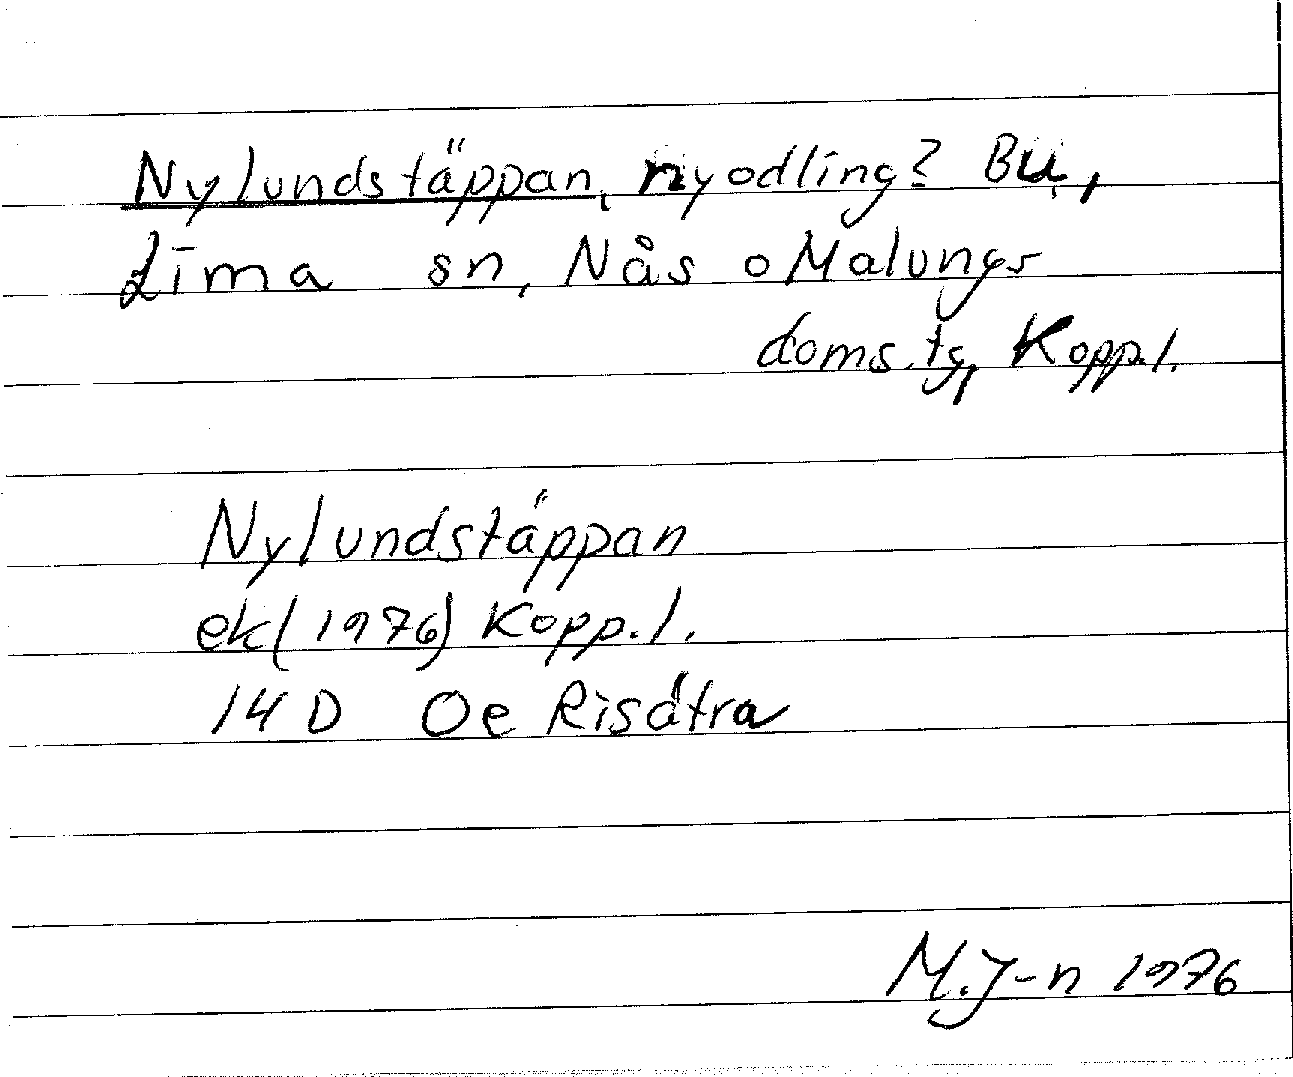 Nylundstäppan, nyodling? Bu,
Lima sn, Nås o Malungs
doms.tg, Kopp.l.
Nylundstäppan
ek(1976) Kopp.l.
14 D Oe Risätra
M.J-n 1976